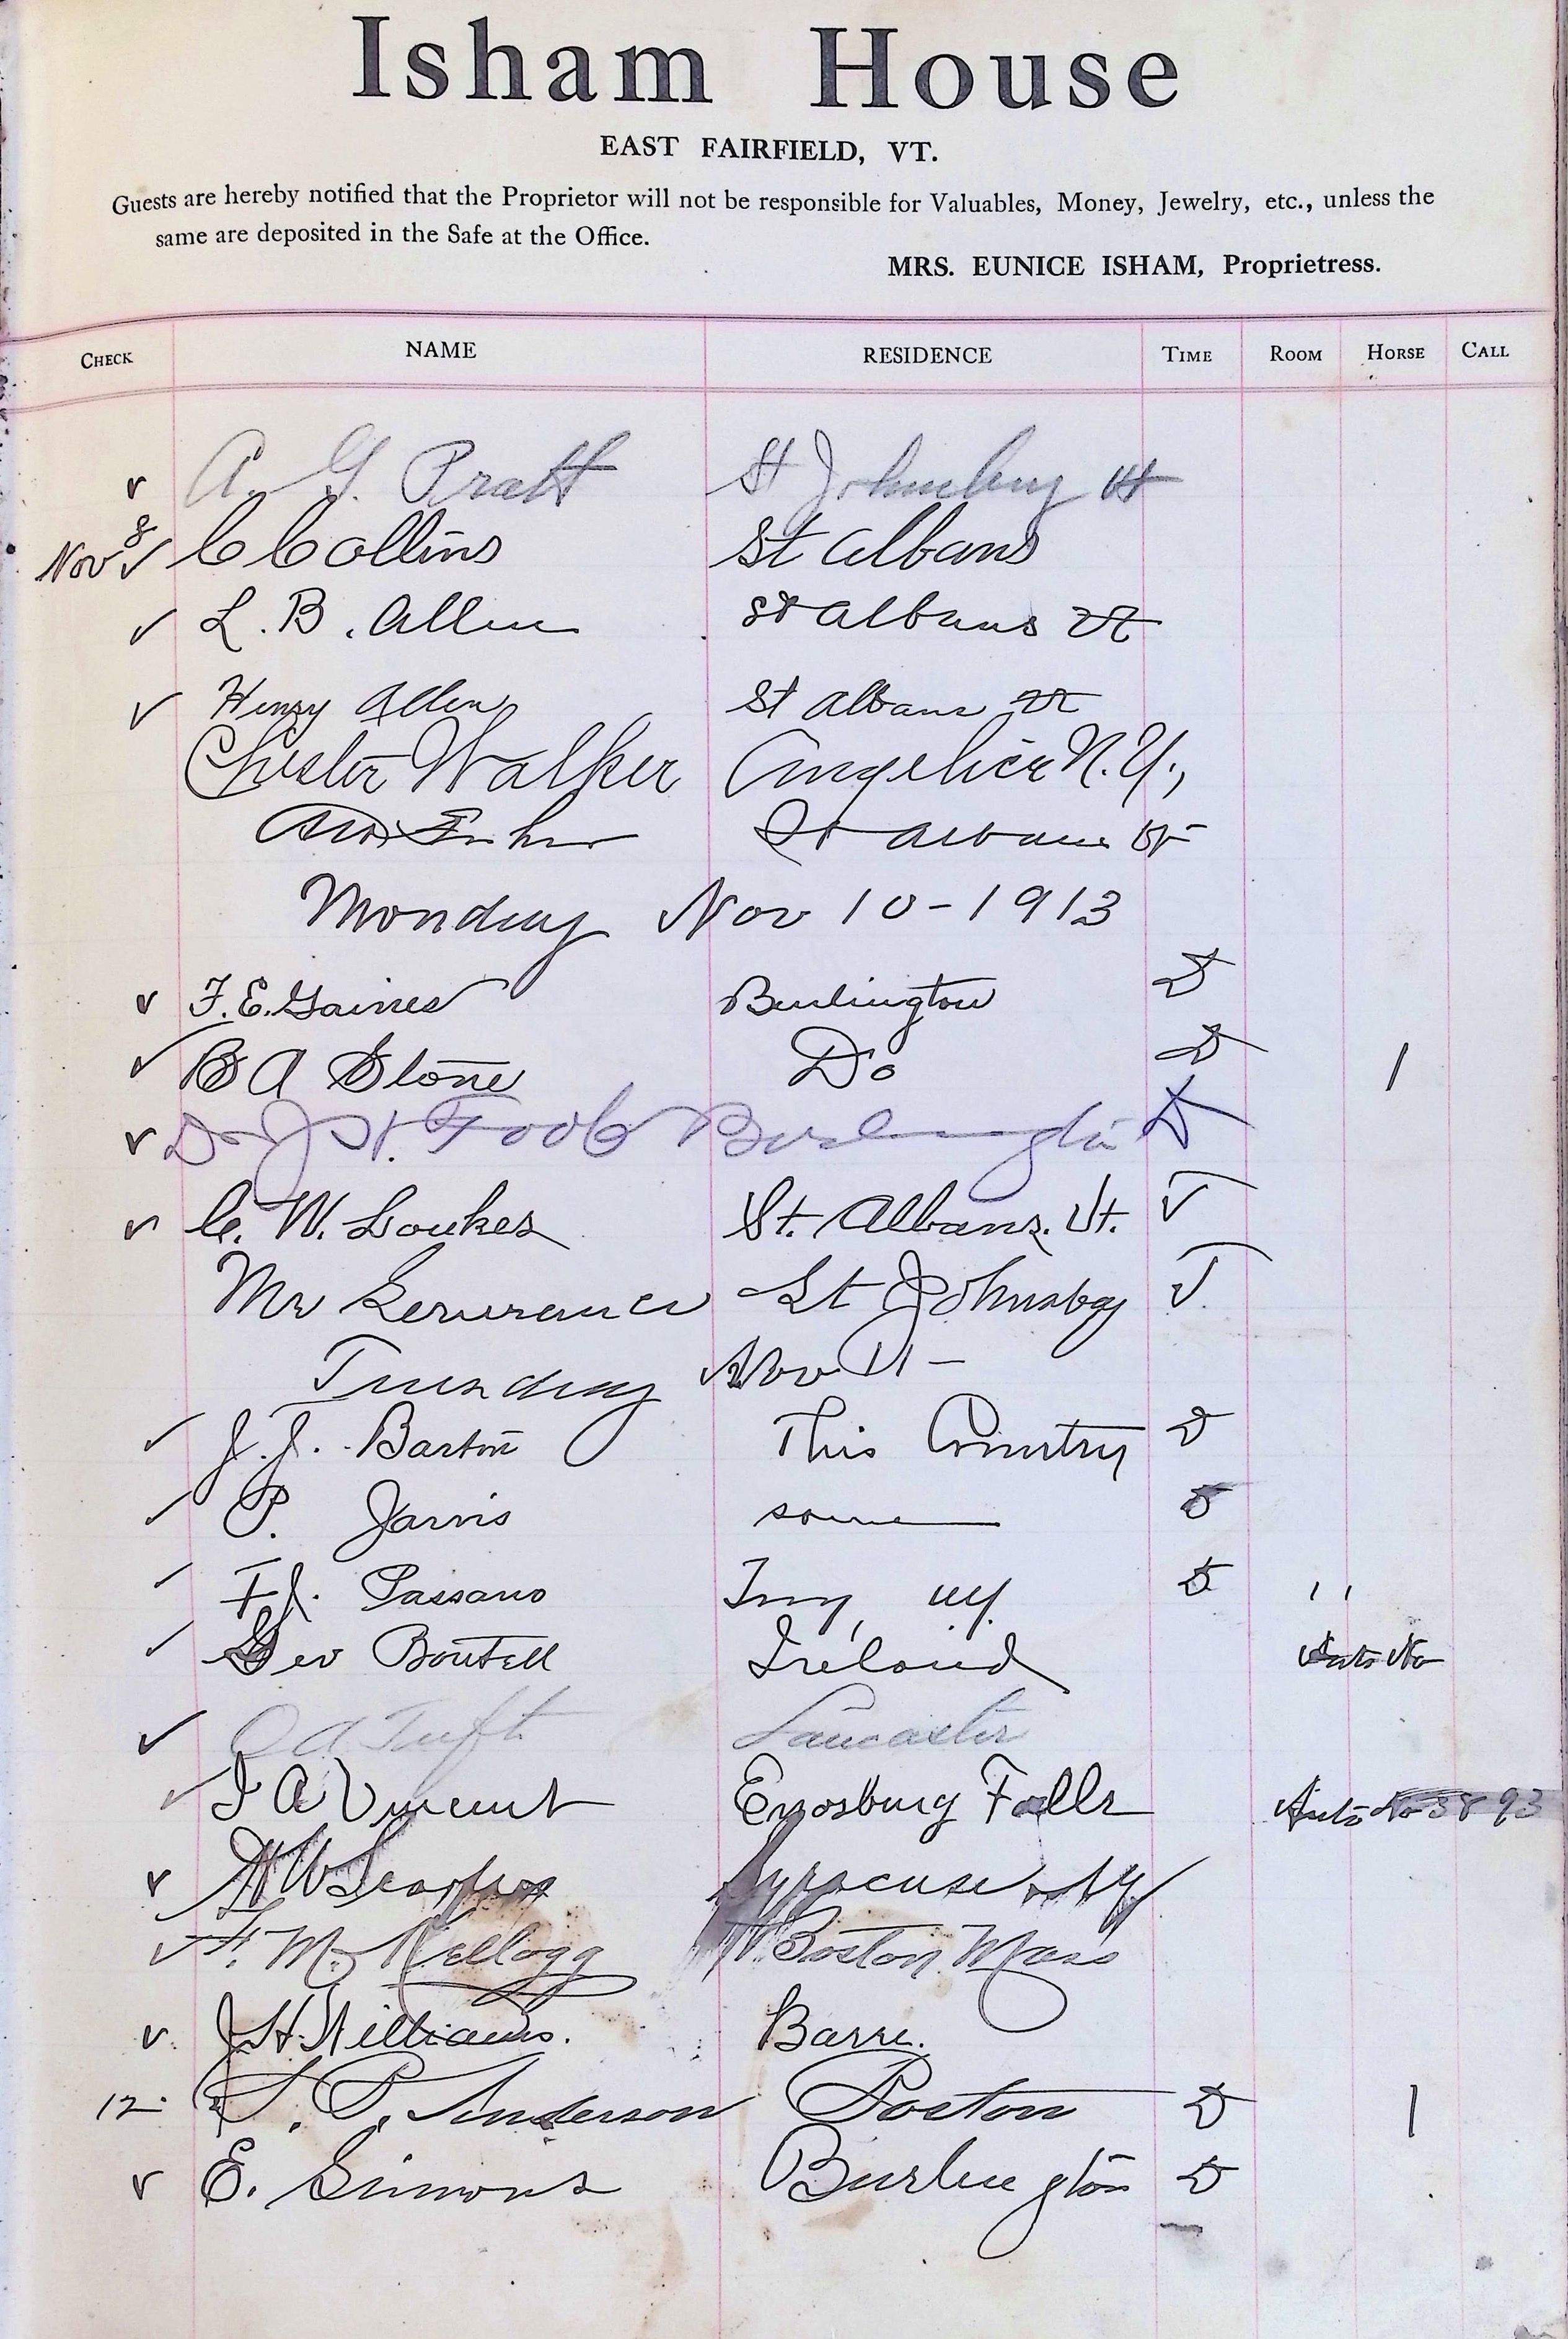 Isham House
EAST FAIRFIELD, VT.
Guests are hereby notified that the Proprietor will not be responsible for Valuables, Money, Jewelry, etc., unless the
same are deposited in the Safe at the Office.
MRS. EUNICE ISHAM, Proprietress.
CHECK NAME RESIDENCE TIME ROOM HORSE CALL
✓ A. G. Pratt St Johnsbury Vt
Nov 8 ✓ C Collins St Albans
✓ L. B. Allen St Albans Vt
✓ Henry Allen St Albans Vt
Chester Walker Angelica N.Y.,
St Albans Vt
Monday Nov 10 - 1913
✓ F. E. Gaines Burlington D
✓ B A Stone Do D 1
✓ Burlington D
✓ C. W. Loukes St. Albans. Vt. T
Mr Serverance St Johnsby T.
Tuesday Nov 11 -
✓ J. J. Barton This Country D
✓ P. Jarvis same D
✓ F J. Passano Troy, NY. D ''
✓ Geo Boutell Ireland Auto No
✓ C A Tuft Lancaster
✓ I A Vincent Enosburg Falls Auto No 3893
✓ Syracuse NY
✓ F. M. Kellogg Boston Mass
✓ J H Williams. Barre.
12 S. P. Anderson Boston D 1
✓ E. Simons Burlington D